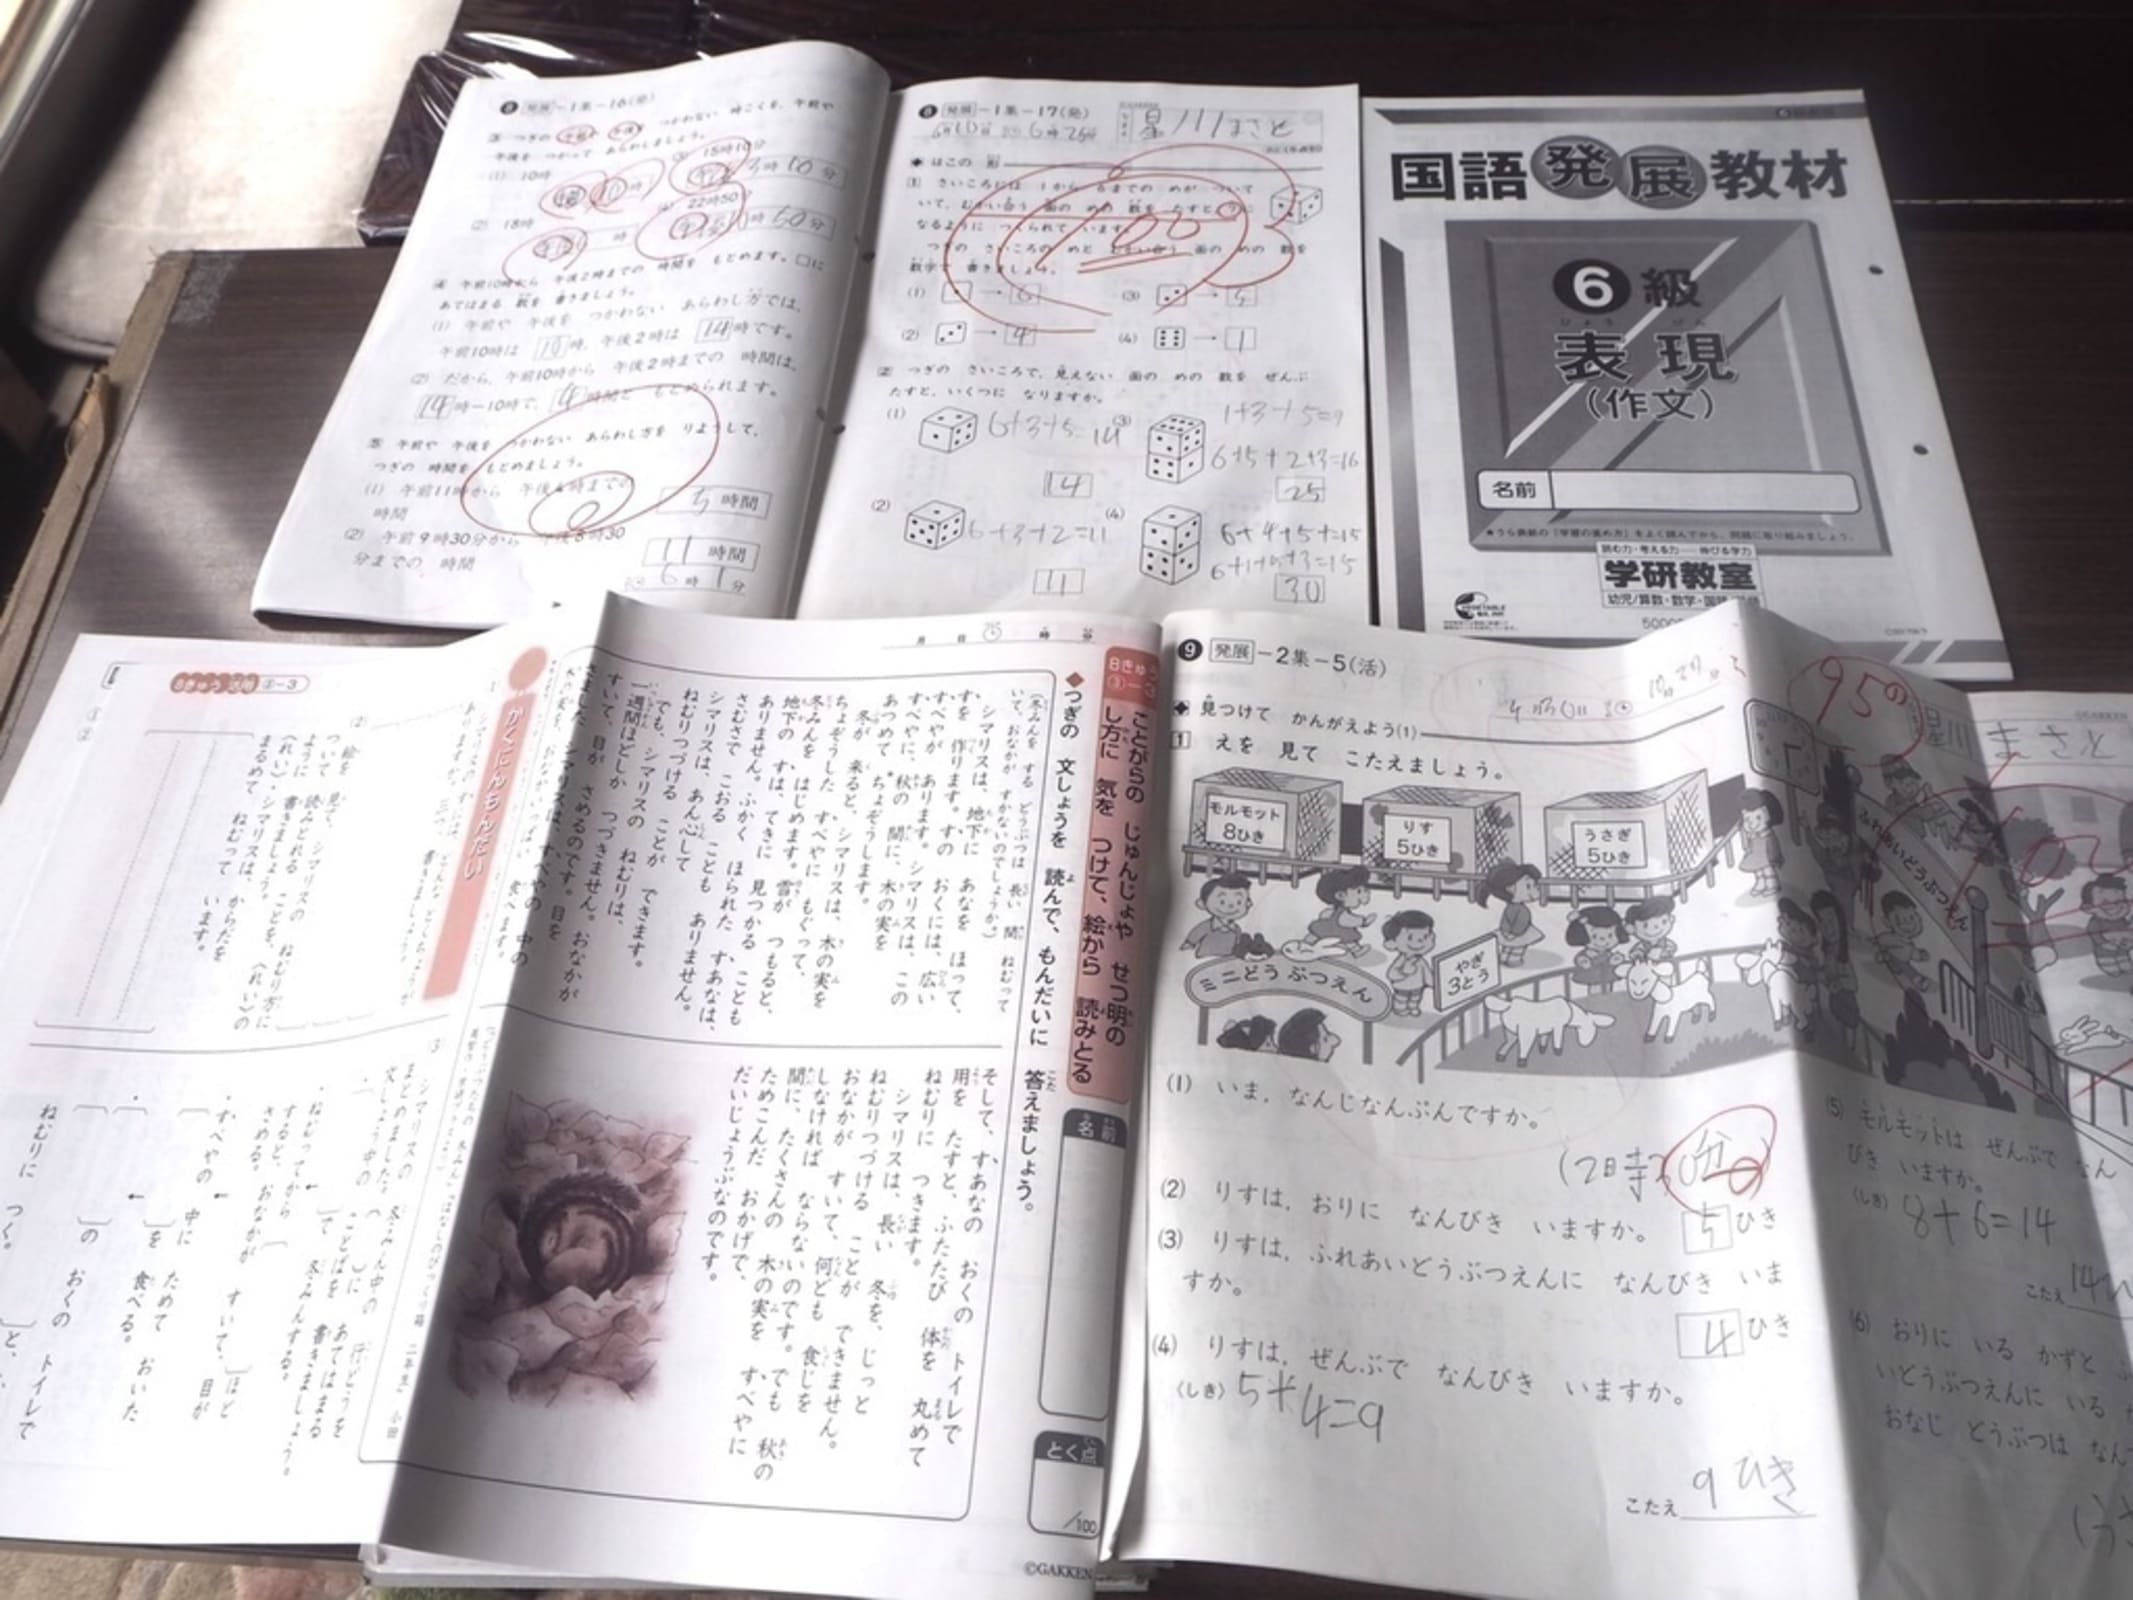 8 発展-1集-16(発)
3 つぎの 午前や 午後を つかわない 時こくを、午前や
午後を つかって あらわしましょう。
(1) 10時
15時10分
(2) 18時
22時50分
4 午前10時から 午後2時までの 時間を もとめます。□に
あてはまる 数を 書きましょう。
(1) 午前や 午後を つかわない あらわし方では、
午前10時は 10時、午後2時は 14時です。
(2) だから、午前10時から 午後2時までの 時間は、
14時-10時で、4時間と もとめられます。
5 午前や 午後を つかわない あらわし方を りようして、
つぎの 時間を もとめましょう。
(1) 午前11時から 午後4時までの
時間
5時間
(2) 午前9時30分から 午後8時30
分までの 時間
11時間
6時1分
8 発展-1集-17(発)
星川まさと
◆はこの 形
1 さいころには 1から 6までの めが ついて
いて、むかい合う 面の めの 数を たすと 7に
なるように つくられて います。
つぎの さいころの めと むかい合う 面の めの 数を
数字で 書きましょう。
100
(1) → 6
(3) → 5
(2) → 4
(4) → 1
2 つぎの さいころで、見えない 面の めの 数を ぜんぶ
たすと、いくつに なりますか。
(1) 6+3+5=14
14
(3) 1+3+5=9
6+5+2+3=16
25
(2) 6+3+2=11
11
(4) 6+4+5=15
30
国語発展教材
6級
ひょう げん
表現
(作文)
名前
★うら表紙の「学習の進め方」をよく読んでから、問題に取り組みましょう。
読む力・考える力 伸びる学力
学研教室
幼児/算数・数学・国語
8きゅう 活用 3-3
かくにんもんだい
(2) 絵を 見て、シマリスの ねむり方に
ついて 読みとれる ことを、〈れい〉の
ように 書きましょう。
〈れい〉・シマリスは、からだを
まるめて ねむって います。
3 シマリスの 冬みん中の 行どうを
まとめました。( )に あてはまる
ことばを 書きましょう。
・ねむってから ( )ほど
すると、おなかが すいて、目が
さめる。
・すべやの 中に ためて おいた
( )を 食べる。
( )の おくの トイレで
ねむりに つく。
月 日 時 分
8きゅう
3-3
ことがらの じゅんじょや せつ明の
し方に 気を つけて、絵から 読みとる
名前
とく点
/100
◆つぎの 文しょうを 読んで、もんだいに 答えましょう。
(冬みんを する どうぶつは 長い 間 ねむって
いて、おなかが すかないのでしょうか。)
シマリスは、地下に あなを ほって、
すを 作ります。すの おくには、広い
すべやが あります。シマリスは、この
すべやに、秋の 間に、木の実を
あつめて ちょぞうします。
冬が 来ると、シマリスは、木の実を
ちょぞうした すべやに もぐって、
冬みんを はじめます。雪が つもると、
地下の すは、てきに 見つかる ことも
ありません。ふかく ほられた すあなは、
さむさで こおる ことも ありません。
シマリスは、あん心して
ねむりつづける ことが できます。
でも、シマリスの ねむりは、
一週間ほどしか つづきません。おなかが
すいて、目が さめるのです。目を
さました シマリスは、すべやの 中の
木の実を、おなかいっぱい 食べます。
そして、すあなの おくの トイレで
用を たすと、ふたたび 体を 丸めて
ねむりに つきます。
シマリスは、長い 冬を、じっと
ねむりつづける ことが できません。
おなかが すいて、何ども 食じを
しなければ ならないのです。でも 秋の
間に、たくさんの 木の実を すべやに
ためこんだ おかげで、
だいじょうぶなのです。
©GAKKEN
9 発展-2集-5(活)
◆見つけて かんがえよう(1)
1 えを 見て こたえましょう。
モルモット
8ひき
りす
5ひき
うさぎ
5ひき
ミニどうぶつえん
やぎ
3とう
ふれあいどうぶつえん
(1) いま、なんじなんぷんですか。
(2) りすは、おりに なんびき いますか。
5ひき
(3) りすは、ふれあいどうぶつえんに なんびき いま
すか。
4ひき
(4) りすは、ぜんぶで なんびき いますか。
(しき) 5+4=9
こたえ 9ひき
95
星川 まさと
©GAKKEN
100
(5) モルモットは ぜんぶで なん
びき いますか。
(しき) 8+6=14
こたえ 14
(6) おりに いる かずと
いどうぶつえんに いる
おなじ どうぶつは